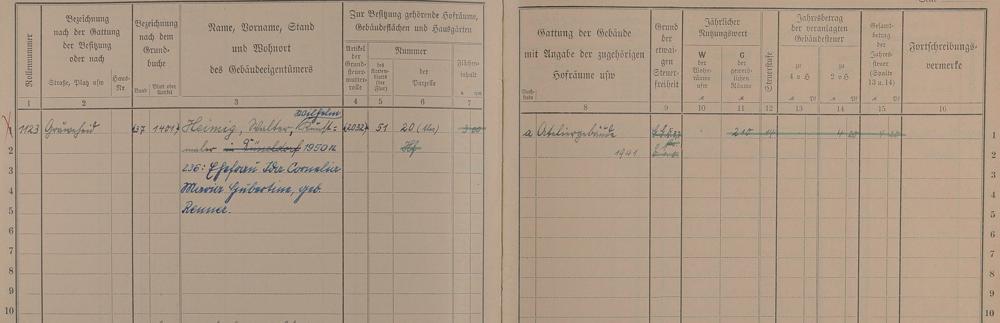 Rollennummer
Bezeichnung
nach der Gattung
der Besitzung
oder nach
Straße, Platz usw
Haus-
Nr
Bezeichnung
nach dem
Grund-
buche
Band
Blatt oder
Artikel
Name, Vorname, Stand
und Wohnort
des Gebäudeeigentümers
Zur Besitzung gehörende Hofräume,
Gebäudeflächen und Hausgärten
Artikel
der
Grund-
steuer-
mutter-
rolle
Nummer
des
Karten-
blatts
(der
Flur)
der
Parzelle
Flächen-
inhalt
a qm
1 2 3 4 5 6 7
1123 137 1401 Heinrig, Walter, Wilhelm Kunst- 51 20
maler in Düsseldorf 1950 N
236: Ehefrau Ida Cornelia
Maria Hubertine, geb.
Renner.
Gattung der Gebäude
mit Angabe der zugehörigen
Hofräume usw
Buch-
stabe
Grund
der
etwai-
gen
Steuer-
freiheit
Jährlicher
Nutzungswert
W
der
Wohn-
räume
usw
G
der
gewerb-
lichen
Räume
Steuerstufe
Jahresbetrag
der veranlagten
Gebäudesteuer
zu
4 v H
zu
2 v H
Gesamt-
betrag
der
Jahres-
steuer
(Spalte
13 u. 14)
Fortschreibungs-
vermerke
8 9 10 11 12 13 14 15 16
a Ateliergebäude 210 14 1
1941 2
3
4
5
6
7
8
9
10